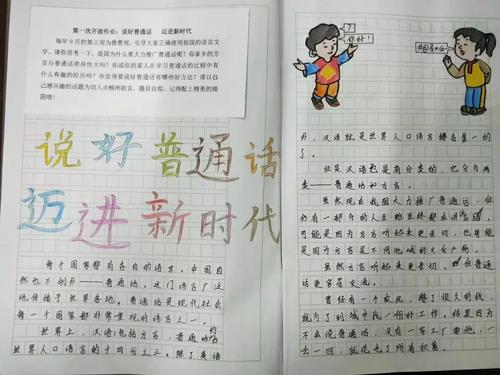 第一次开放作业：说好普通话 迈进新时代
每年9月的第三周为推普周，引导大家正确使用祖国的语言文
字。请你思考一下，我国为什么要大力推广普通话呢？你家乡的方
言与普通话差异性大吗？你或你的家人在学习普通话的过程中有
什么有趣的经历吗？你觉得要说好普通话有哪些好方法？请以自
己感兴趣的话题为切入点畅所欲言，题目自拟，记得配上精美的插
图哦！
说好普通话
迈进新时代
每个国家都有各自的语言，中国自
然也不例外——普通话，这门语言广泛
地传播于世界各地。普通话是现代社会
每一个国家都非常重视的语言之一。
世界上，汉语（包括方言、普通话）约占
世界人口语言的十四分之三。除了英语
？
你好！
外，汉语就是世界人口语言排名第一的
了。
但是汉语也是有分类的，它分为两
类——普通话和方言。
虽然现在我国大力推广普通话，但
仍有一部分的人至始至终都在讲方言，
可能是因为方言听起来更亲切，也可能
是因为方言是不同地域的文化产物。
虽然方言听起来更亲切，但普通
话更容易交流。
曾经有一个农民，赚了很久的钱，
就为了到城中找一份好工作。结果因为
不会说普通话，没有一家工厂要他，一
去一回，就花光了所有积蓄。